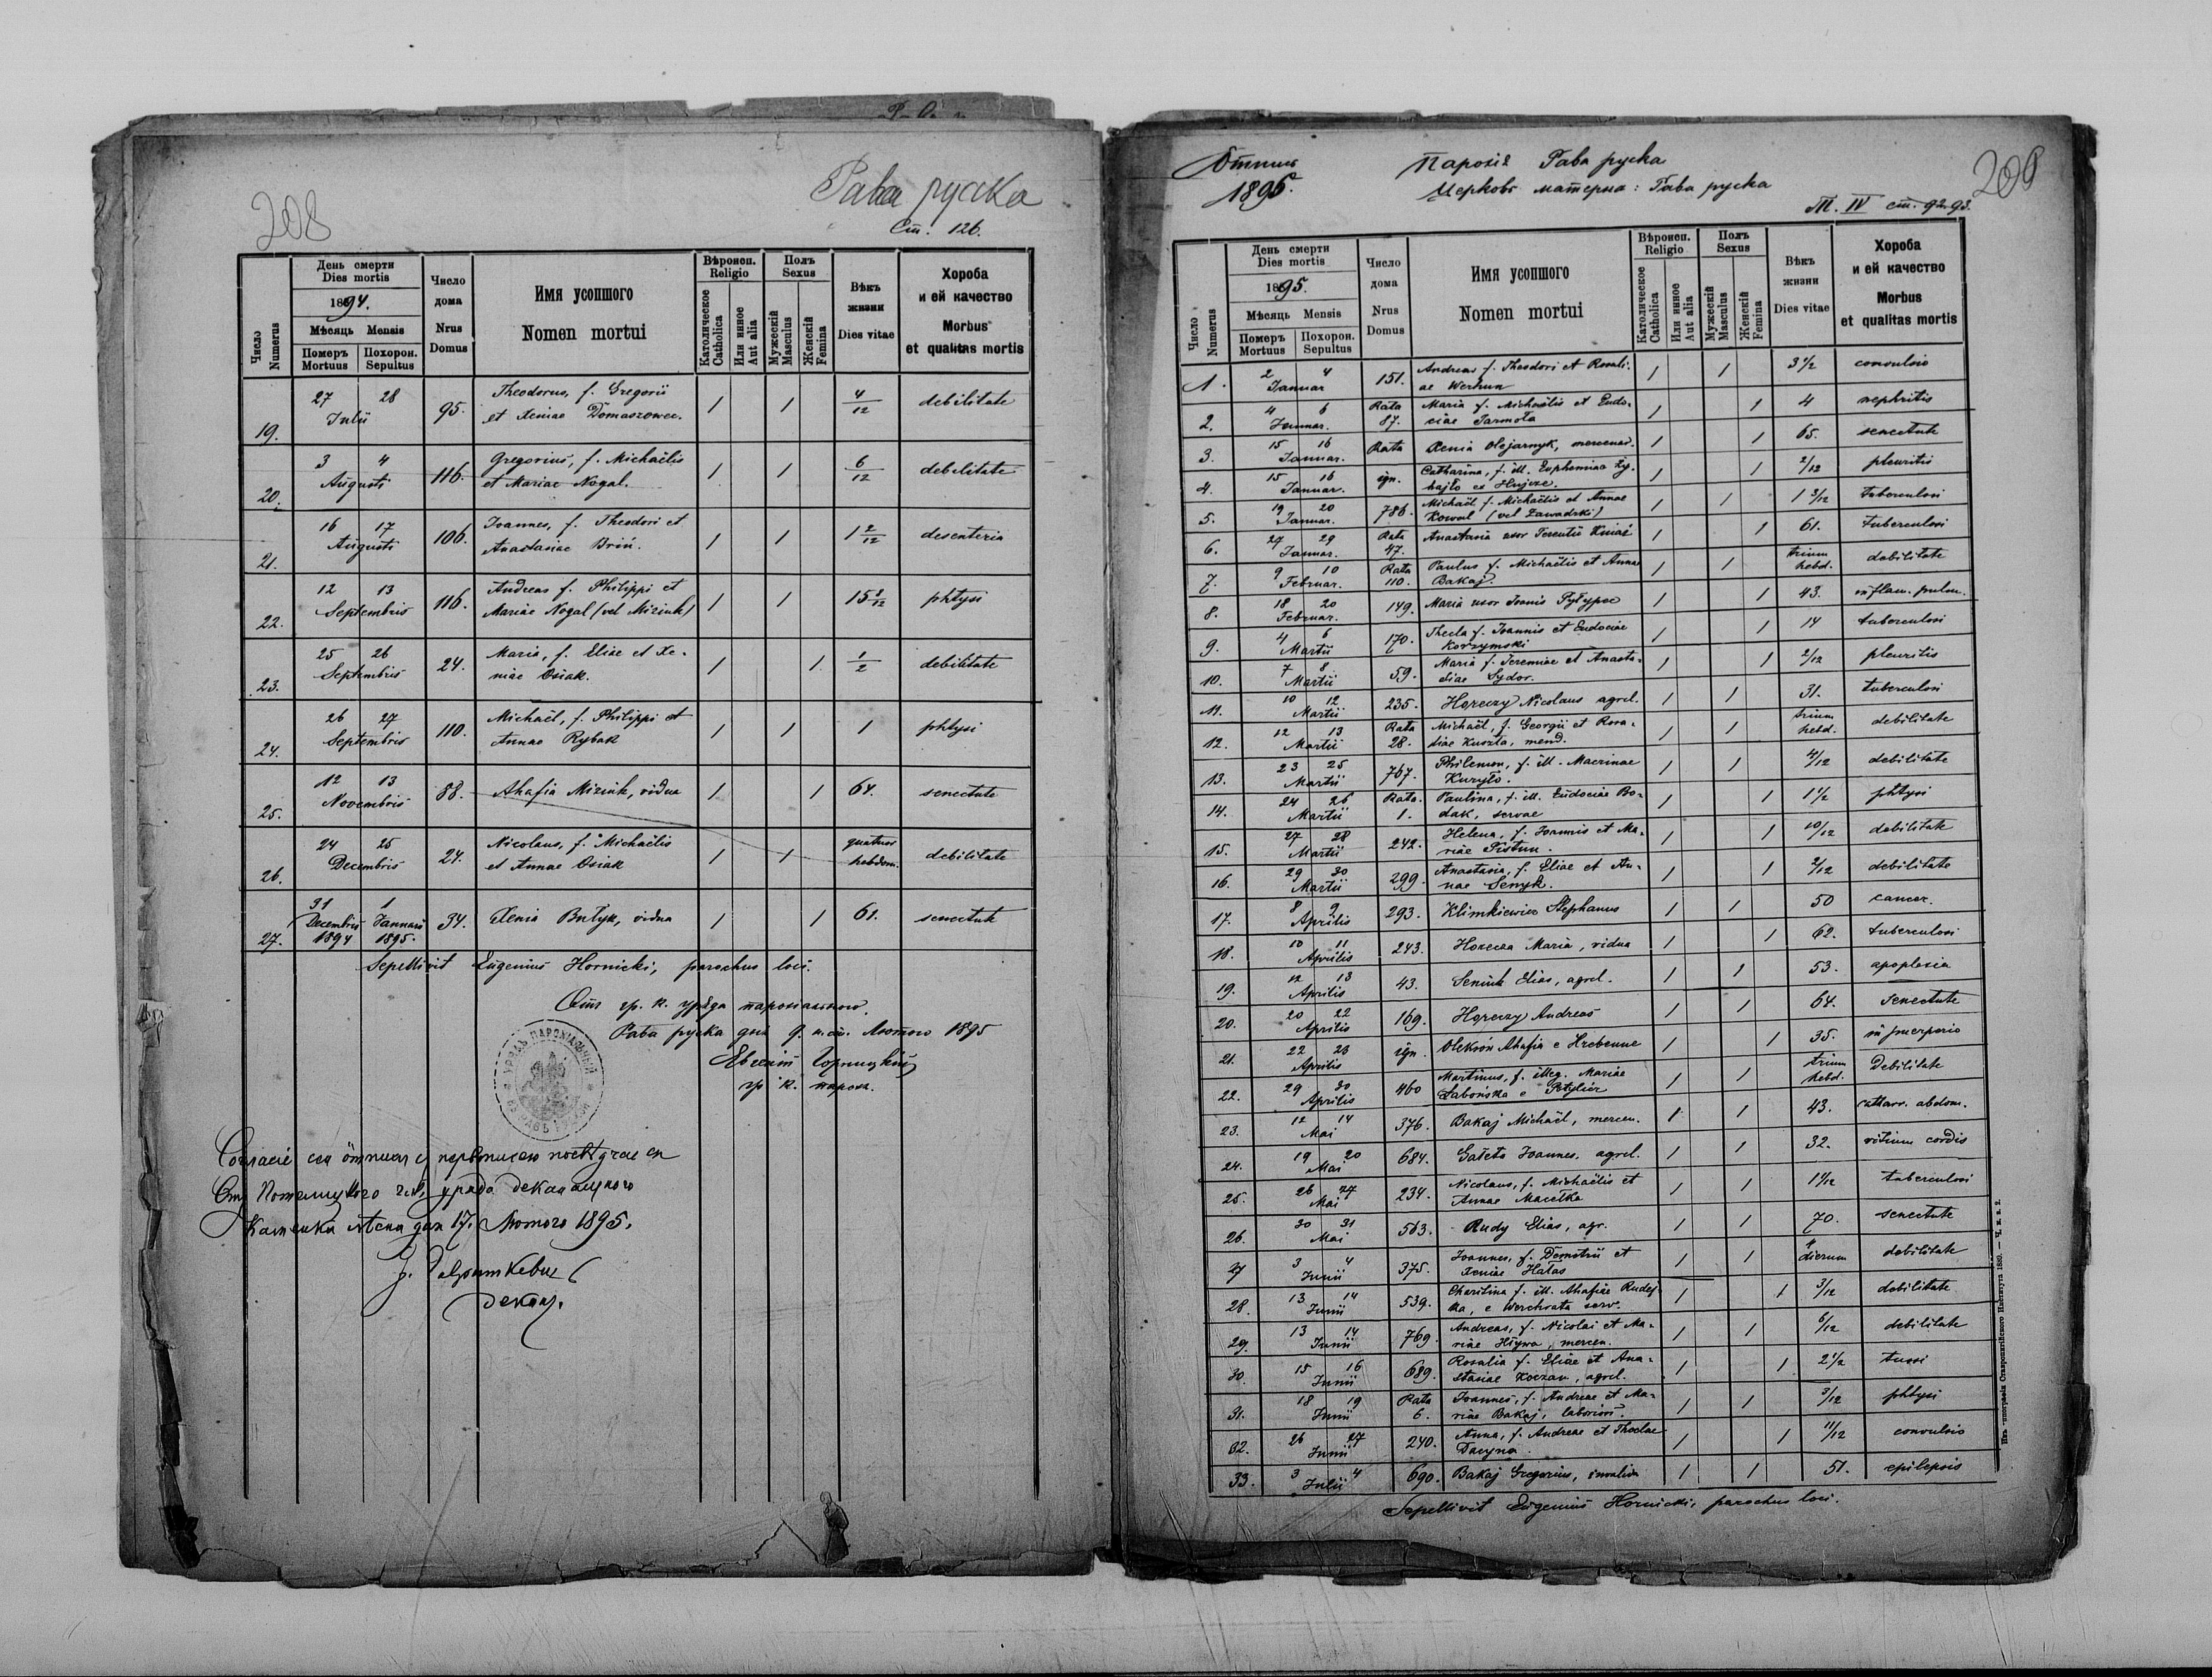 208
Рава руска
Ст. 126.
Число Numerus
День смерти Dies mortis
1894.
Мѣсяць Mensis
Померъ Mortuus
Похорон. Sepultus
Число дома Nrus Domus
Имя усопшого Nomen mortui
Вѣроисп. Religio
Католическое Catholica
Или инное Aut alia
Полъ Sexus
Мужескій Masculus
Женскій Femina
Вѣкъ жизни Dies vitae
Хороба и ей качество Morbus et qualitas mortis
19. 27 28 Julii 95. Theodorus, f. Gregorii et Xeniae Domaszowec. / / 4/12 debilitate
20. 3 4 Augusti 116. Gregorius, f. Michaëlis et Mariae Nogal. / / 6/12 debilitate
21. 16 17 Augusti 106. Joannes, f. Theodori et Anastasiae Briń. / / 1 2/12 desenteria
22. 12 13 Septembris 116. Andreas f. Philippi et Mariae Nogal (vel Miziuk) / / 15 8/12 phtysi
23. 25 26 Septembris 24. Maria, f. Eliae et Xeniae Osiak. / / 1/2 debilitate
24. 26 27 Septembris 110. Michaël, f. Philippi et Annae Rybak / / 1 phtysi
25. 12 13 Novembris 88. Ahafia Miziuk, vidua / / 64. senectute
26. 24 25 Decembris 24. Nicolaus, f. Michaëlis et Annae Osiak / / quatuor hebdom. debilitate
27. 31 Decembris 1894 1 Januarii 1895. 34. Xenia Bułyk, vidua / / 61. senectute
Sepellivit Eugenius Hornicki, parochus loci.
Отъ гр. к. уряда парохіального.
Рава руска дня 9. н. ст. Лютого 1895
Евгеній Горницкій
гр. к. парох.
УРЯДЪ ПАРОХІАЛЬНЫЙ
Отъ уряда деканального
Каменка лѣсна дня 17. Лютого 1895.
декан.
209
Отпись 1895.
Парохія Рава руска
Церковь матерна: Рава руска
Т. IV ст. 92-93.
Число Numerus
День смерти Dies mortis
1895.
Мѣсяць Mensis
Померъ Mortuus
Похорон. Sepultus
Число дома Nrus Domus
Имя усопшого Nomen mortui
Вѣроисп. Religio
Католическое Catholica
Или инное Aut alia
Полъ Sexus
Мужескій Masculus
Женскій Femina
Вѣкъ жизни Dies vitae
Хороба и ей качество Morbus et qualitas mortis
1. 2 4 Januar 151. Andreas f. Theodori et Rosaliae Werhun / / 3 1/2 convulsio
2. 4 6 Januar. Rata 87. Maria f. Michaëlis et Eudociae Jarmoła / / 4 nephritis
3. 15 16 Januar. Rata Xenia Olejarnyk, mercenar. / / 65. senectute
4. 15 16 Januar. ign. Catharina, f. ill. Euphemiae Łyhajło ex Hujcze. / / 2/12 pleuritis
5. 19 20 Januar. 786. Michaël f. Michaëlis et Annae Kowal (vel Zawadzki) / / 1 3/12 tuberculosi
6. 27 29 Januar. Rata 47. Anastasia uxor Terentii Kniaź / / 61. tuberculosi
7. 9 10 Februar. Rata 110. Paulus f. Michaëlis et Annae Bakaj. / / trium hebd. debilitate
8. 18 20 Februar. 149. Maria uxor Joanis Pyłypec / / 43. inflam. pulm.
9. 4 6 Martii 170. Thecla f. Joannis et Eudociae Korzymski / / 14 tuberculosi
10. 7 8 Martii 59. Maria f. Jeremiae et Anastasiae Sydor. / / 2/12 pleuritis
11. 10 12 Martii 235. Horeczy Nicolaus agrel. / / 31. tuberculosi
12. 12 13 Martii Rata 28. Michaël, f. Georgii et Rosaliae Kuszła, mend. / / trium hebd. debilitate
13. 23 25 Martii 767. Philemon, f. ill. Macrinae Kuryło. / / 4/12 debilitate
14. 24 26 Martii Rata. 1. Paulina, f. ill. Eudociae Bodak, servae / / 1 1/2 phtysi
15. 27 28 Martii 242. Helena, f. Joannis et Mariae Fistun. / / 10/12 debilitate
16. 29 30 Martii 299. Anastasia, f. Eliae et Annae Senyk. / / 2/12 debilitate
17. 8 9 Aprilis 293. Klimkiewicz Stephanus / / 50 cancer.
18. 10 11 Aprilis 243. Horecza Maria, vidua / / 62. tuberculosi
19. 12 13 Aprilis 43. Seniuk Elias, agrel. / / 53. apoplexia
20. 20 22 Aprilis 169. Horeczy Andreas / / 64. senectute
21. 22 23 Aprilis ign. Oleksów Ahafia e Hrebenne / / 35. in puerperio
22. 29 30 Aprilis 460 Martinus, f. illeg. Mariae Łabońska e Potylicz / / trium hebd. Debilitate
23. 12 14 Mai 376. Bakaj Michaël, mercen. / / 43. cattarr. abdom.
24. 19 20 Mai 684. Gałeta Joannes, agrel. / / 32. vitium cordis
25. 26 27 Mai 234. Nicolaus, f. Michaëlis et Annae Macełka / / 1 1/12 tuberculosi
26. 30 31 Mai 563. Rudy Elias, agr. / / 70. senectute
27 3 4 Junii 375. Joannes, f. Demetrii et Xeniae Hałas / / 4 dierum debilitate
28. 13 14 Junii 539. Charitina f. ill. Ahafiae Rudejka, e Werchrata serv. / / 3/12 debilitate
29. 13 14 Junii 769. Andreas, f. Nicolai et Mariae Hływa, mercen. / / 6/12 debilitate
30. 15 16 Junii 689. Rosalia f. Eliae et Anastasiae Koczan, agrel. / / 2 1/2 tussi
31. 18 19 Junii Rata 6. Joannes, f. Andreae et Mariae Bakaj, laborios. / / 3/12 phtysi
32. 26 27 Junii 240. Anna, f. Andreae et Theclae Daryna. / / 11/12 convulsio
33. 3 4 Julii 690. Bakaj Gregorius, invalida / / 51. epilepsis
Sepellivit Eugenius Hornicki, parochus loci.
Изъ типографіи Ставропигійского Института 1880.